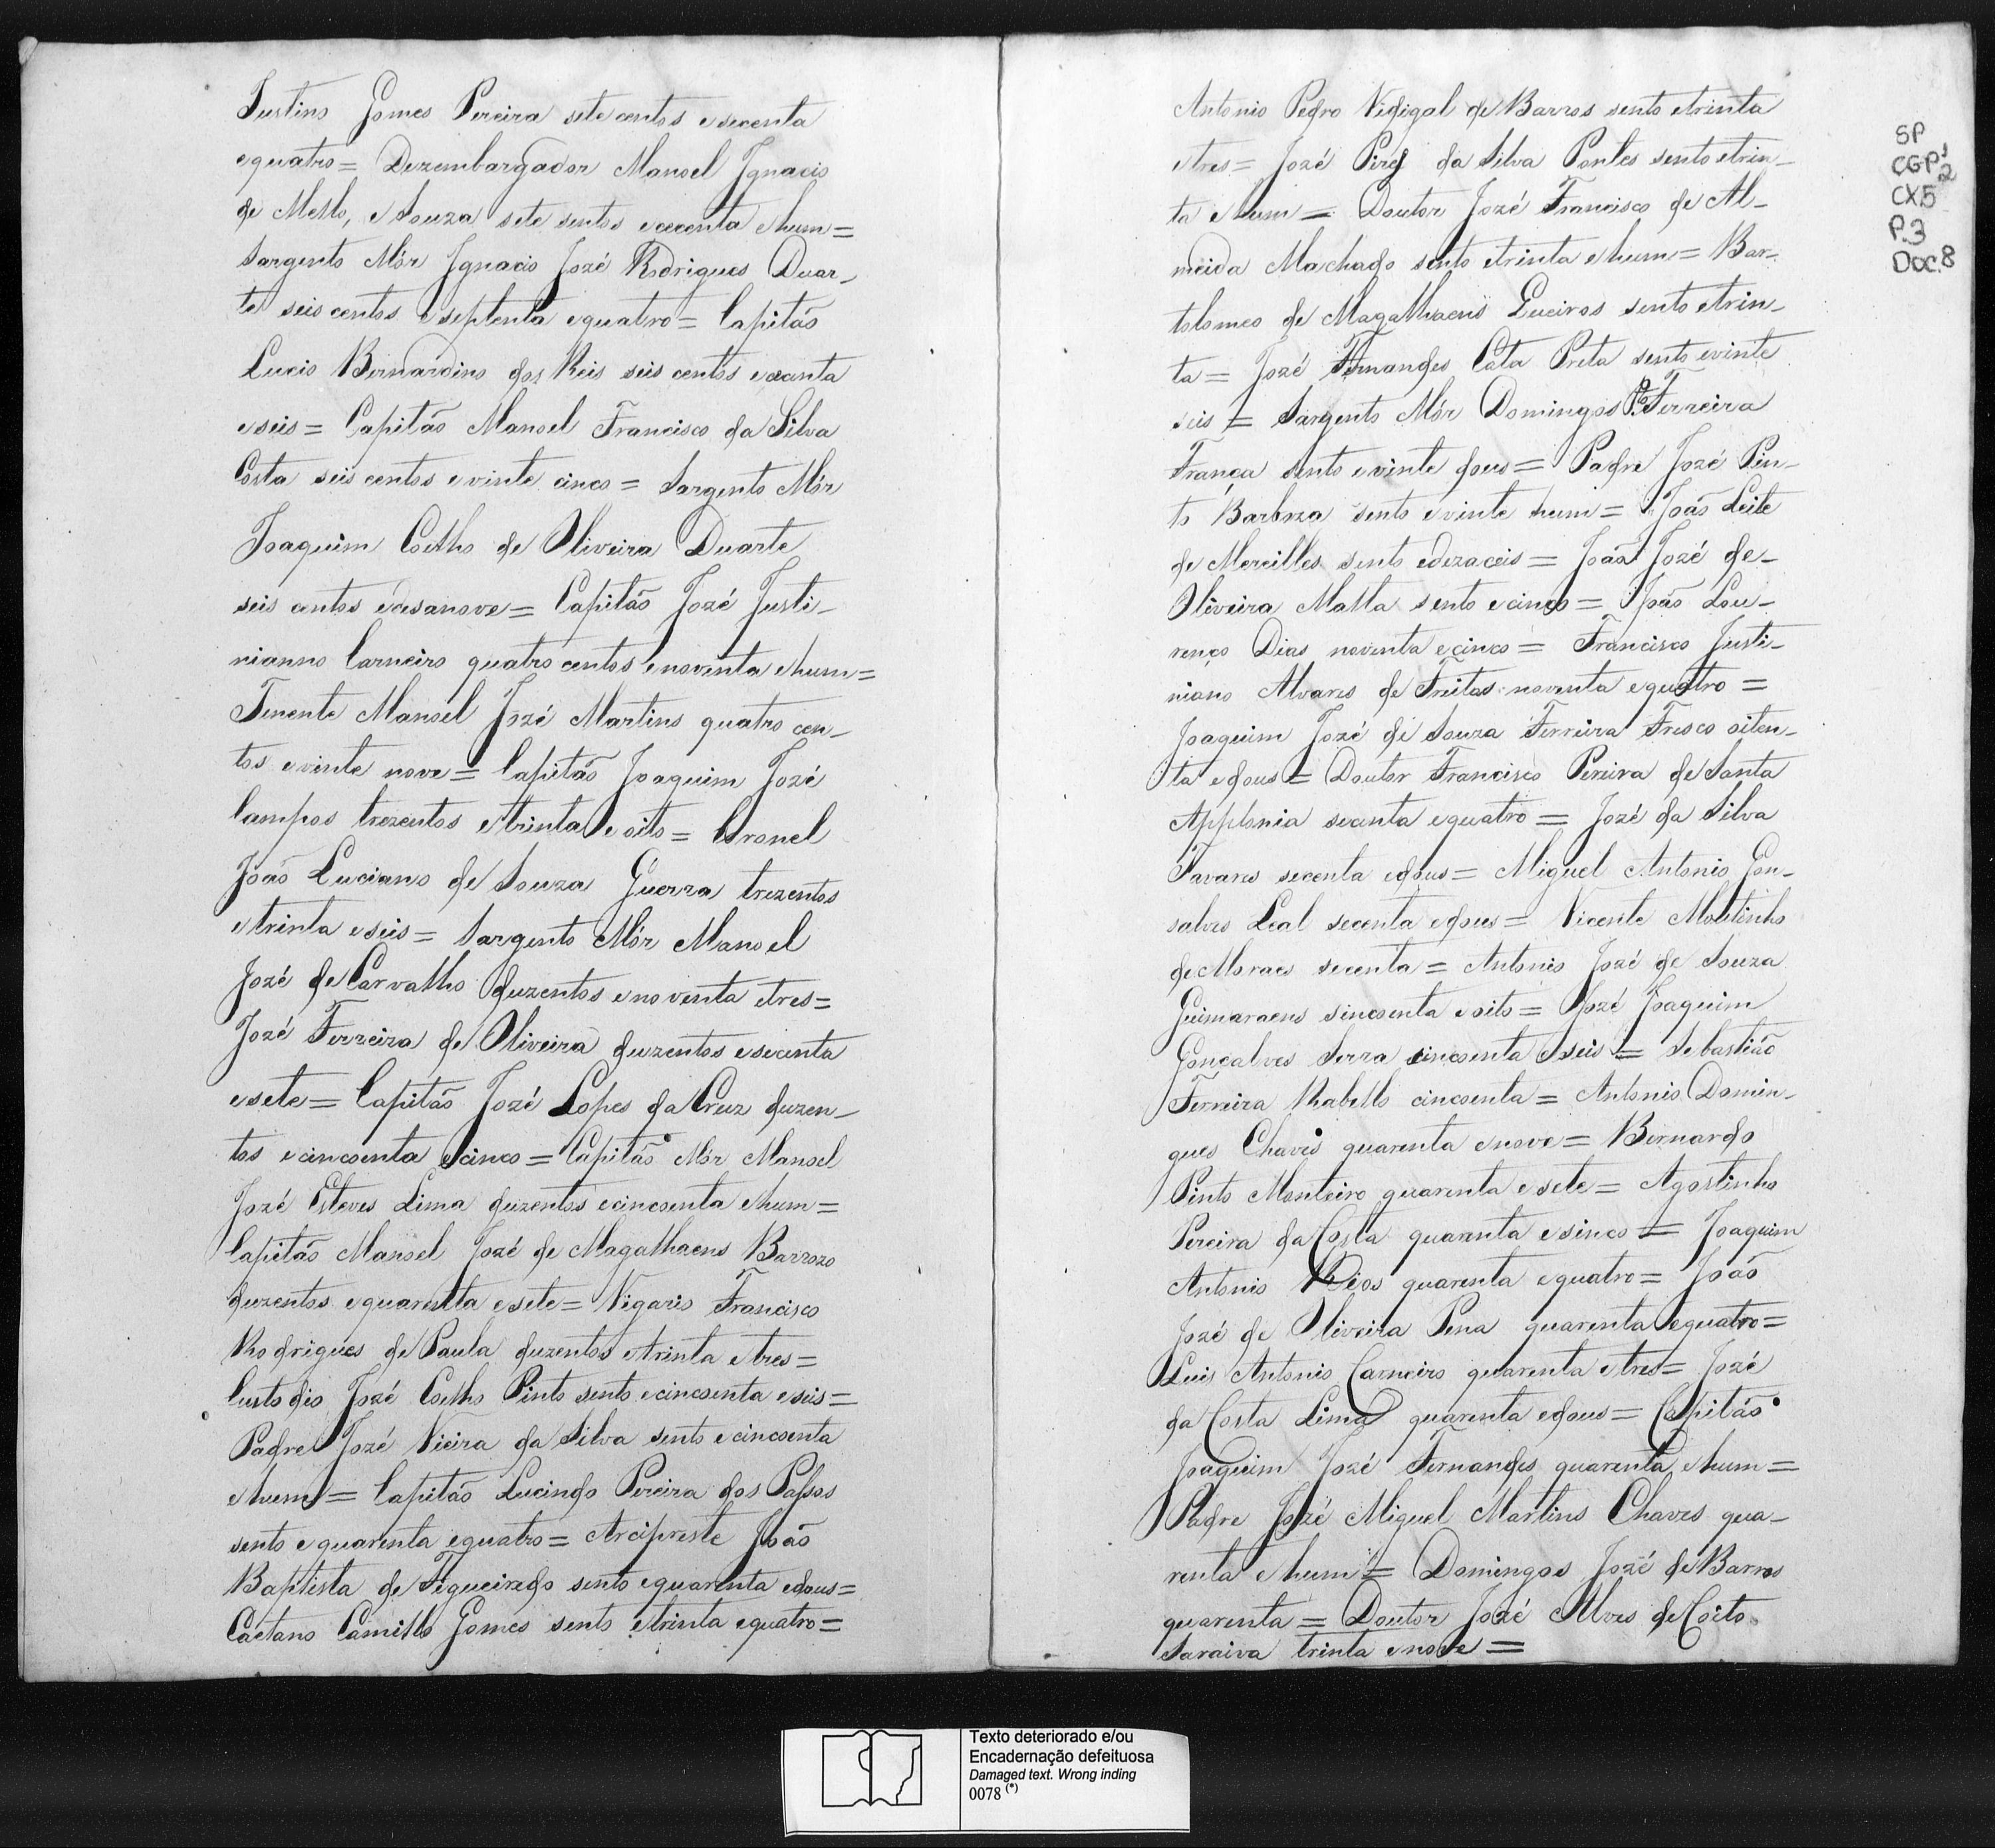 Justino Gomes Pereira sete centos e secenta
e quatro = Dezembargador Manoel Ignacio
de Mello, e Souza sete sentos e cecenta e hum =
Sargento Mór Ignacio Jozé Rodrigues Duar_
te seis centos e septenta e quatro = Capitão
Lucio Bernardino dos Reis seis centos e cecenta
e seis = Capitão Manoel Francisco da Silva
Costa seis centos e vinte cinco = Sargento Mór
Joaquim Coelho de Oliveira Duarte
seis centos e desanove = Capitão Jozé Justi_
nianno Carneiro quatro centos e noventa e hum =
Tenente Manoel Jozé Martins quatro cen_
tos e vinte nove = Capitão Joaquim Jozé
Campos trezentos e trinta e oito = Coronel
João Luciano de Souza Guerra trezentos
e trinta e seis = Sargento Mór Manoel
Jozé de Carvalho duzentos e noventa e tres =
Jozé Ferreira de Oliveira duzentos e secenta
e sete = Capitão Jozé Lopes da Cruz duzen_
tos e cincoenta e cinco = Capitão Mór Manoel
Jozé Esteves Lima duzentos e cincoenta e hum =
Capitão Manoel Jozé de Magalhaens Barrozo
duzentos e quarenta e sete = Vigario Francisco
Rodrigues de Paula duzentos e trinta e tres =
Custodio Jozé Coelho Pinto sento e cincoenta e seis =
Padre Jozé Vieira da Silva sento e cincoenta
e hum = Capitão Lucindo Pereira dos Passos
sento e quarenta e quatro = Arcipreste João
Baptista de Figueiredo sento e quarenta e dous =
Caetano Camillo Gomes sento e trinta e quatro =
Antonio Pedro Vidigal de Barros sento e trinta
e tres = Jozé Pires da Silva Pontes sento e trin_
ta e hum = Doutor Jozé Francisco de Al_
meida Machado sento e trinta e hum = Bar_
tolomeo de Magalhaens Queiros sento e trin_
ta = Jozé Fernandes Cata Preta sento e vinte
seis = Sargento Mór Domingos Pto. Ferreira
França sento e vinte dous = Padre Jozé Pin_
to Barboza sento e vinte hum = João Leite
de Mereilles sento e dezaceis = João Jozé de_
Oliveira Malta sento e cinco = João Lou_
renço Dias noventa e cinco = Francisco Justi_
niano Alvares de Freitas noventa e quatro =
Joaquim Jozé de Souza Ferreira Fresco oiten_
ta e dous = Doutor Francisco Pereira de Santa
Applonia secenta e quatro = Jozé da Silva
Tavares secenta e dous = Miguel Antonio Gon_
salves Leal secenta e dous = Vicente Moutinho
de Moraes secenta = Antonio Jozé de Souza
Guimaraens sincoenta e oito = Jozé Joaquim
Gonçalves Serra sincoenta e seis = Sebastião
Ferreira Rabello cincoenta = Antonio Domin_
gues Chaves quarenta e nove = Bernardo
Pinto Monteiro quarenta e sete = Agostinho
Pereira da Costa quarenta e sinco = Joaquim
Antonio Dios quarenta e quatro = João
Jozé de Oliveira Pena quarenta e quatro =
Luis Antonio Carneiro quarenta e tres = Jozé
da Costa Lima quarenta e dous = Capitão
Joaquim Jozé Fernandes quarenta e hum =
Padre Jozé Miguel Martins Chaves qua_
renta e hum = Domingos Jozé de Barros
quarenta = Doutor Jozé Alves de Coito
Saraiva trinta e nove =
SP
CGP1
2
CX.5
P.3
Doc.8
Texto deteriorado e/ou
Encadernação defeituosa
Damaged text. Wrong inding
0078 (*)